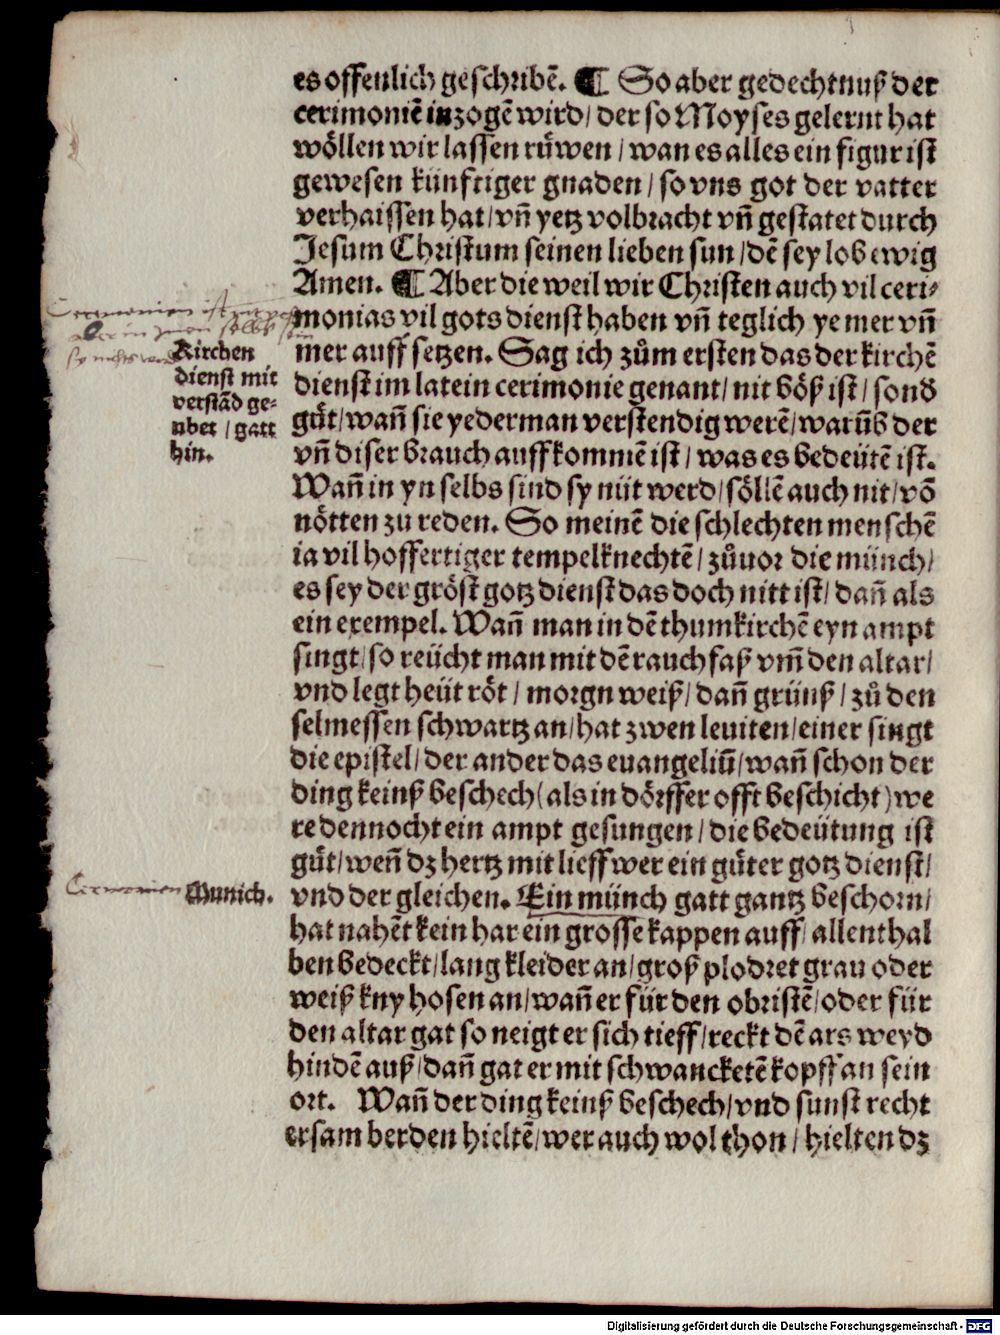 es offenlich geschribē. ¶ So aber gedechtnuß der
cerimoniē inzogē wird / der so Moyses gelernt hat
wöllen wir lassen rüwen / wan es alles ein figur ist
gewesen künfftiger gnaden / so vns got der vatter
verhaissen hat / vñ yetz volbracht vñ gestatet durch
Jesum Christum seinen lieben sun / dē sey lob ewig
Amen. ¶ Aber die weil wir Christen auch vil ceri-
monias vil gots dienst haben vñ teglich ye mer vñ
mer auff setzen. Sag ich zům ersten das der kirchē
dienst im latein cerimonie genant / nit böß ist / sond
gůt / wañ sie yederman verstendig werē / warūb der
vñ diser brauch auffkommē ist / was es bedeütē ist.
Wañ in yn selbs sind sy nüt werd / söllē auch nit / vō
nötten zu reden. So meinē die schlechten menschē
ia vil hoffertiger tempelknechtē / zůuor die münch /
es sey der gröst gotz dienst das doch nitt ist / dañ als
ein exempel. Wañ man in dē thumkirchē eyn ampt
singt / so reücht man mit dē rauchfaß vm̄ den altar /
vnd legt heüt röt / morgn weiß / dañ grünß / zů den
selmessen schwartz an / hat zwen leuiten / einer singt
die epistel / der ander das euangeliū / wañ schon der
ding keinß beschech (als in dörffer offt beschicht) we
re dennocht ein ampt gesungen / die bedeütung ist
gůt / weñ dz hertz mit lieff wer ein gůter gotz dienst /
vnd der gleichen. Ein münch gatt gantz beschorn /
hat nahēt kein har ein grosse kappen auff / allenthal
ben bedeckt / lang kleider an / groß plodret grau oder
weiß kny hosen an / wañ er für den obristē / oder für
den altar gat so neigt er sich tieff / reckt dē ars weyd
hindē auß / dañ gat er mit schwancketē kopff an sein
ort. Wañ der ding keinß beschech / vnd sunst recht
ersam berden hieltē / wer auch wol thon / hielten dz
Kirchen
dienst mit
verstād ge-
ubet / gatt
hin.
Ceremonien
Munich.
Digitalisierung gefördert durch die Deutsche Forschungsgemeinschaft - DFG